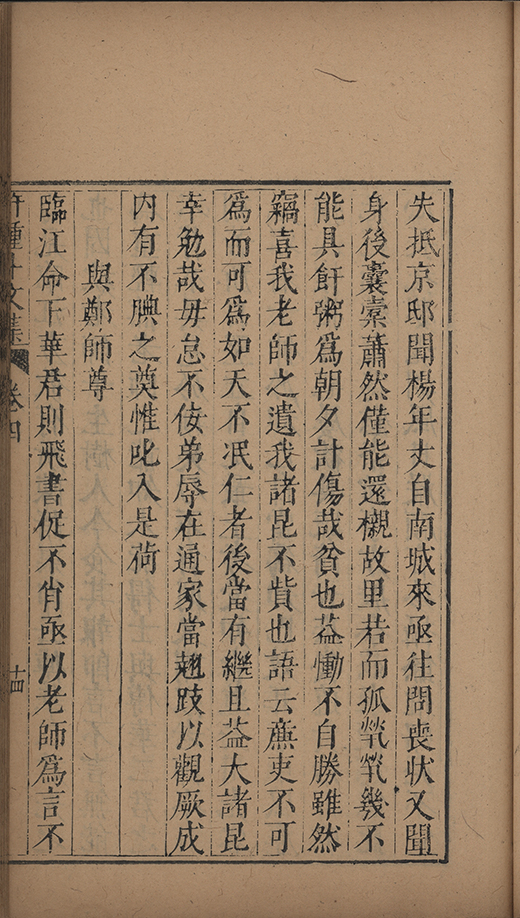 失抵京邸聞楊年丈自南城來亟往問喪状又聞
身後囊槖蕭然僅能還櫬故里若而孤煢煢幾不
能具飦粥爲朝夕計傷哉貧也葢慟不自勝雖然
竊喜我老師之遺我諸昆不貲也語云亷吏不可
爲而可爲如天不泯仁者後當有繼且葢大諸昆
幸勉哉毋怠不佞弟辱在通家當翹跂以觀厥成
内有不腆之奠惟叱入是荷
與鄭師尊
臨江命下華君則飛書促不肖亟以老師爲言不
許鍾斗文集
卷四
十四